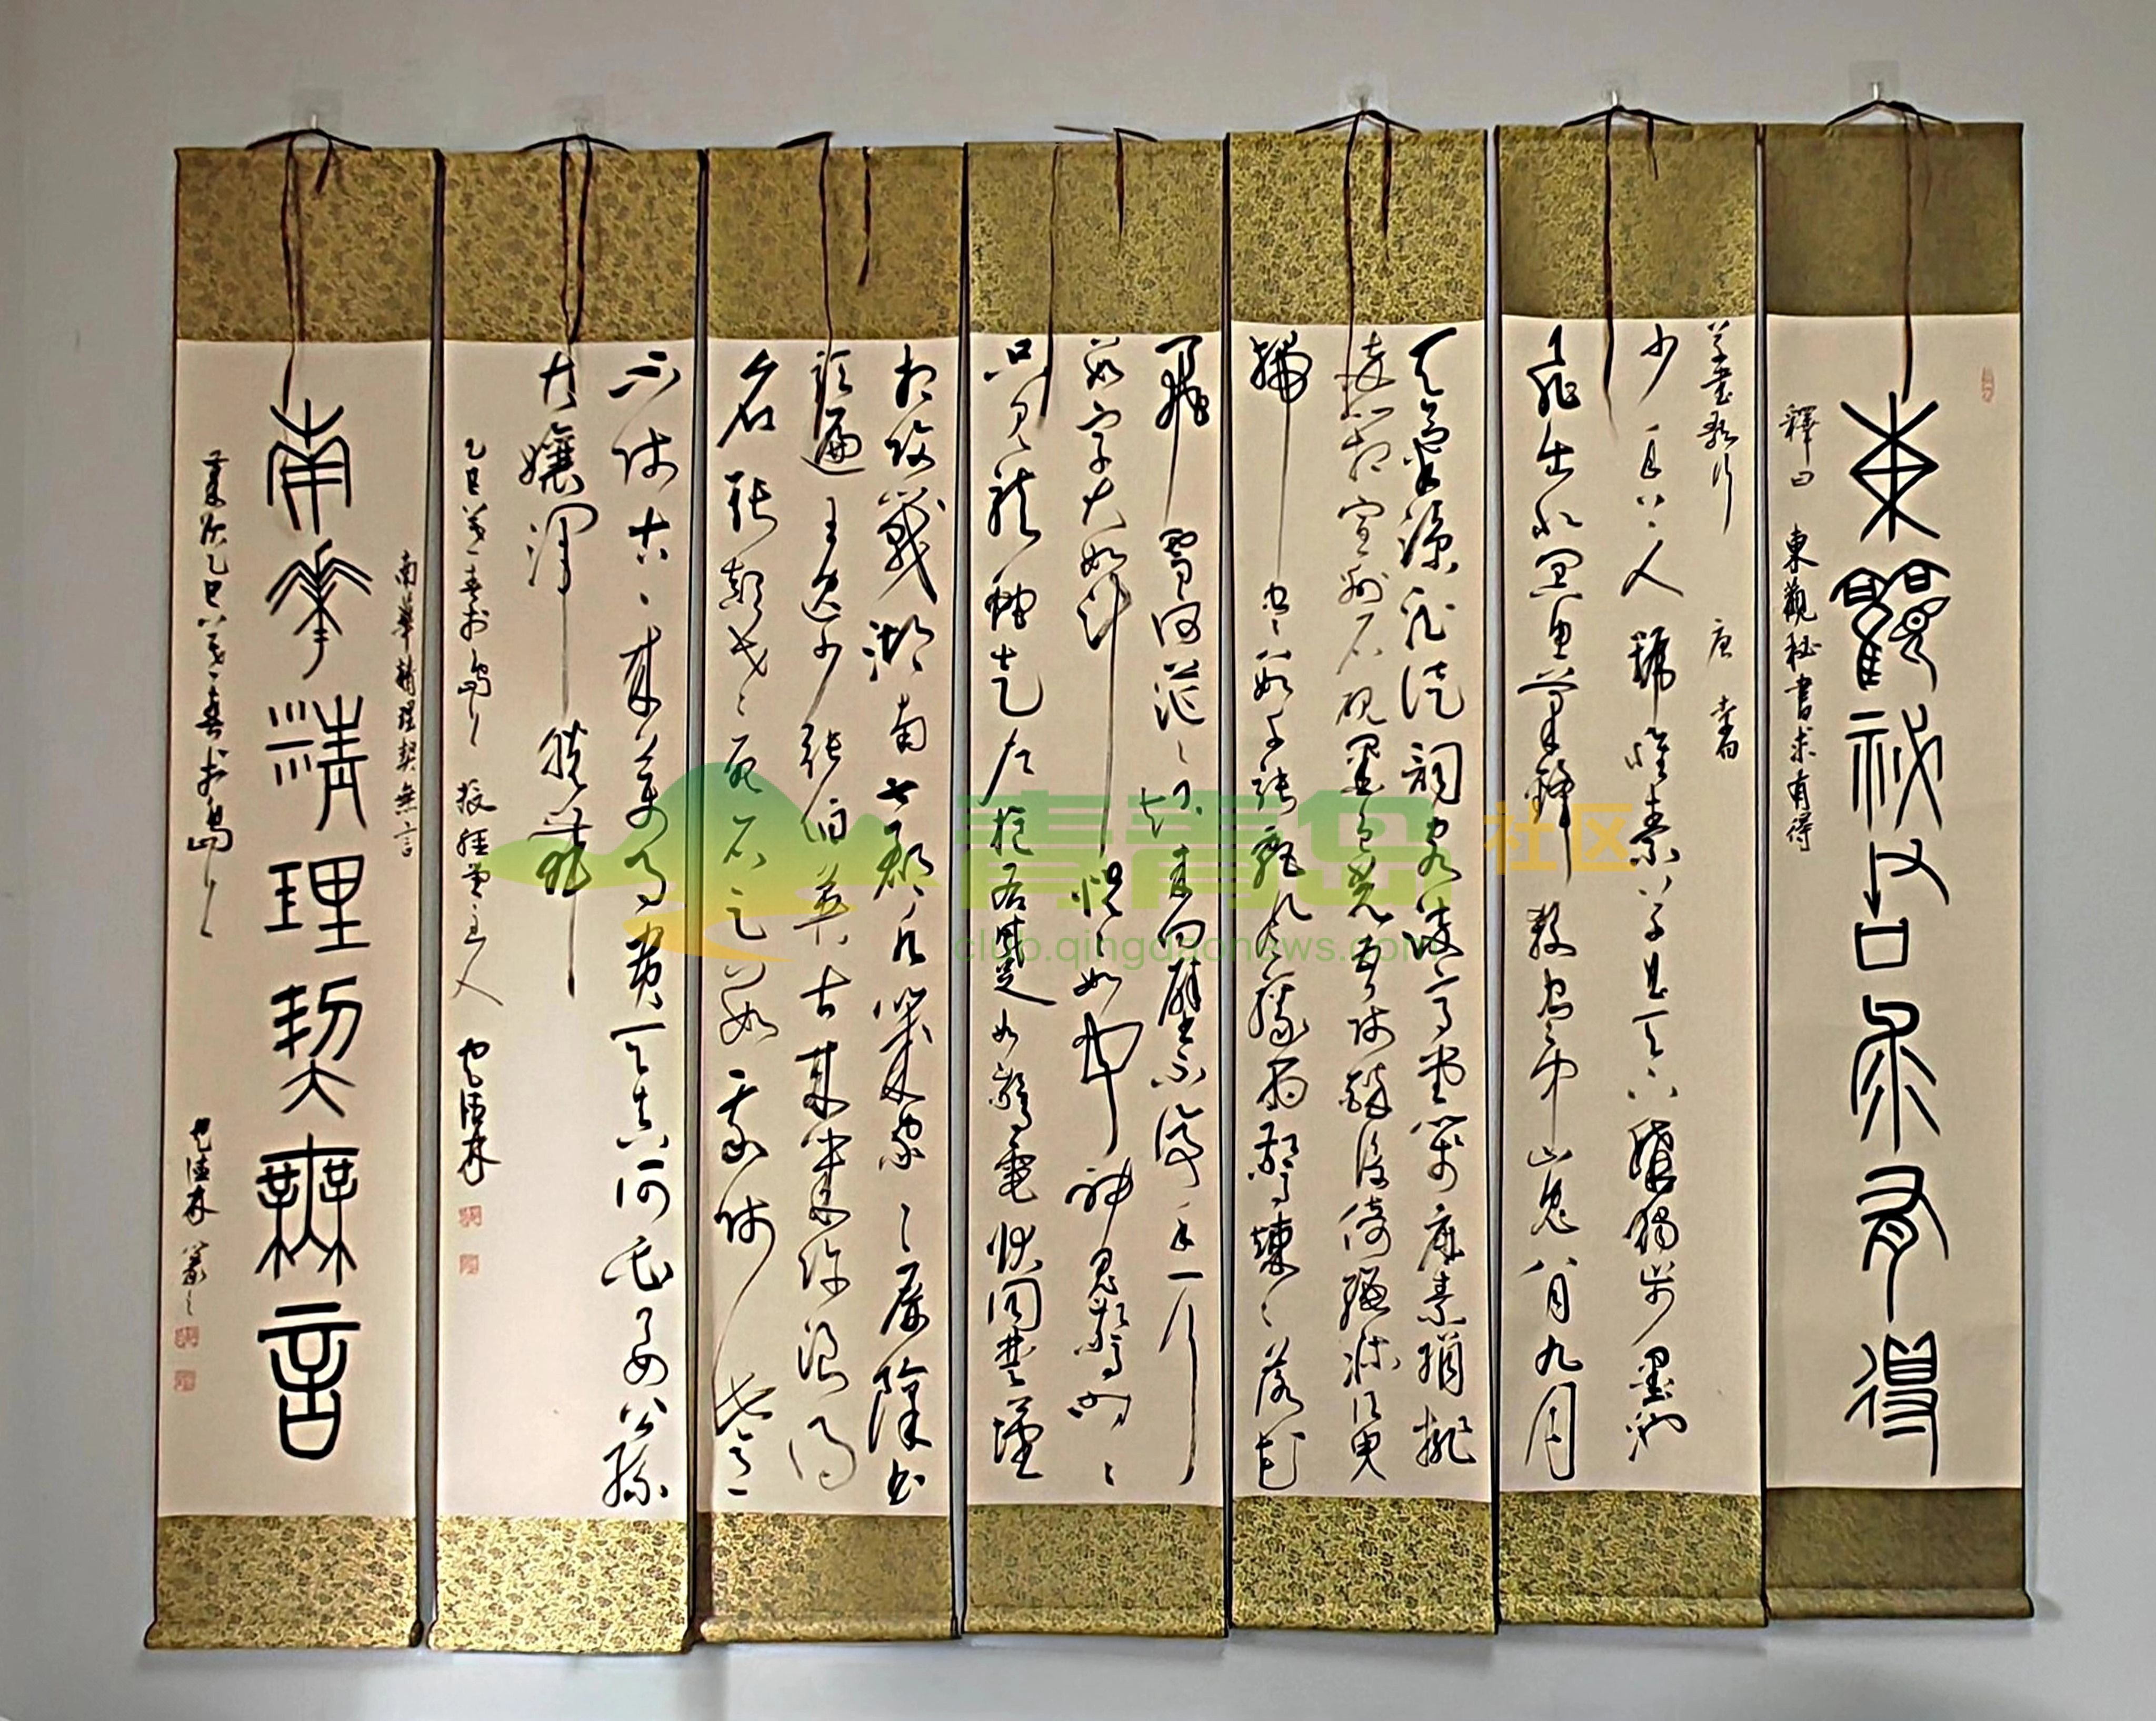 東觀祕書求有得
釋曰 東觀秘書求有得
草書歌行 唐 李白
少年上人號懷素草書天下稱獨步墨池
飛出北溟魚筆鋒殺盡中山兔八月九月
天氣涼酒徒詞客滿高堂箋麻素絹排
數箱宣州石硯墨色光吾師醉後倚繩床須臾
掃盡數千張飄風驟雨驚颯颯落花
飛雪何茫茫起來向壁不停手一行
數字大如斗怳怳如聞神鬼驚時時
只見龍蛇走左盤右蹙如驚電狀同楚漢
相攻戰湖南七郡凡幾家家家屏障書
題遍王逸少張伯英古來幾許浪得
名張顛老死不足數我師此義
不師古古來萬事貴天生何必要公孫
大娘渾脫舞
南華精理契無言
南華精理契無言
青青岛社区
club.qingdaonews.com